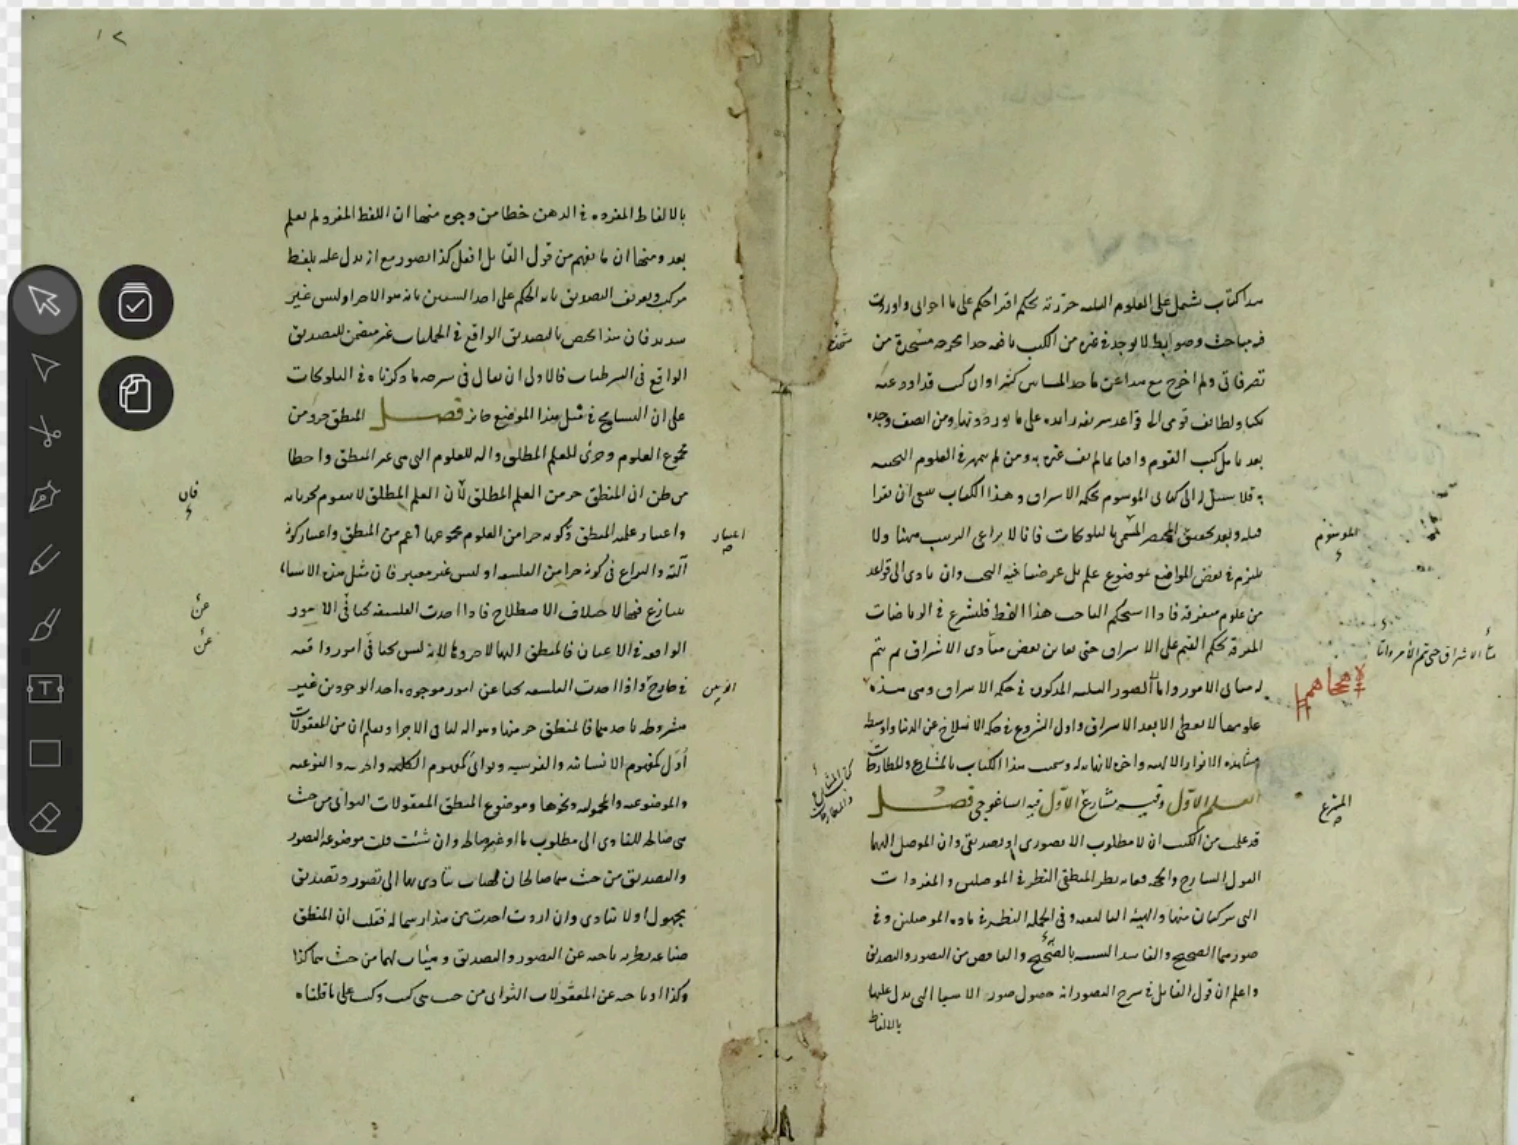 هذا كتاب يشتمل على العلوم الثلثة حررته بحكم اقتراحكم على يا اخوانى واوردت
فيه مباحث وضوابط لا يوجد فى غيره من الكتب نافعة جدا مخرجة مشحذة من
تصرفاتى ولم اخرج مع هذا عن ماخذ المشاس كثيرا وان كنت قد اودعته
نكتا ولطائف تومى الى قواعد شريفة زائدة على ما يوردونها ومن انصف وجده
بعد تامل كتب القوم وافيا بما لم يف غيره به ومن لم يتمهر فى العلوم البحثية
به فلا سبيل له الى كتابى الموسوم بحكمة الاشراق وهذا الكتاب ينبغى ان يقرا
قبله وبعد تحقيق المختصر المسمى بالتلويحات فانا لا نراعى الترتيب ههنا ولا
نلتزم فى بعض المواضع بموضوع علم بل غرضنا فيه البحث وان تادى الى قواعد
من علوم متفرقة فاذا استحكم الباحث هذا النمط فليشرع فى الرياضات
المبرقة بحكم القيم على الاشراق حتى يعاين بعض مبادى الاشراق ثم يتم
له مبانى الامور واما الصور الثلثة المذكورة فى حكمة الاشراق وهى هذه
علومها لا يعطى الا بعد الاشراق واول الشروع فى حكمة الانسلاخ عن الدنيا واوسطه
مشاهدة الانوار الالهية واخره لا نهاية له وسميت هذا الكتاب بالمشارع والمطارحات
العلم الاول وفيه مشارع الاول فيه ايساغوجى فصل
قد علمت من الكتب ان لا مطلوب الا تصورى او تصديقى وان الموصل اليهما
القول الشارح والحجة فغاية نظر المنطقى النظر فى الموصلين والمفردات
التى تركبان منها والهيئة التاليفية وفى الجملة النظر فى مادة الموصلين وفى
صورتهما الصحيح والفاسد الشبيه بالصحيح والناقص من التصور والتصديق
واعلم ان قول القائل فى شرح التصور انه حصول صورة الاشيا التى يدل عليها
بالالفاظ
مشحذة
الموسوم
المشرع
كتاب المشارع
والمطارحات
١٢
بالالفاظ المفردة فى الذهن خطا من وجوه منها ان اللفظ المفرد لم يعلم
بعد ومنها ان ما يفهم من قول القائل افعل كذا تصور مع انه يدل عليه بلفظ
مركب وتعريف التصديق بانه الحكم على احد الشيئين بانه هو الاخر او ليس غير
سديد فان هذا يخص بالتصديق الواقع فى الحمليات غير متضمن للتصديق
الواقع فى الشرطيات فالاولى ان يقال فى شرحه ما ذكرناه فى التلويحات
على ان التسامح فى مثل هذا الموضع جائز فصل المنطق جزء من
مجموع العلوم وجزئى للعلم المطلق واله للعلوم التى هى غير المنطق واخطا
من ظن ان المنطق جزء من العلم المطلق لان العلم المطلق لا يتقوم بجزئياته
واعتبار علمية المنطق وكونه جزا من العلوم مجموعها اعم من المنطق واعتبار كونه
آلته والنزاع فى كونه جزا من الفلسفة او ليس غير معتبر فان مثل هذه الاشيا
يتنازع فيها لاختلاف الاصطلاح فاذا اخذت الفلسفة بحثا فى الامور
الواقعة فى الاعيان فالمنطق آلتها لا جزؤها لانه ليس بحثا فى امور واقعة
فى خارج واذا اخذت الفلسفة بحثا عن امور موجودة باحد الوجودين غير
مشروطة باحدهما فالمنطق جزء منها وهو اله لباقى الاجزا ويعلم ان من المعقولات
أول كمفهوم الانسانية والفرسية وثوانى كمفهوم الكلية والجزئية والنوعية
والموضوعية والمحمولية ونحوها وموضوع المنطق المعقولات الثوانى من حيث
هى صالحة للتادى الى مطلوب ما او غير صالحة وان شئت قلت موضوعه التصور
والتصديق من حيث هما صالحان لحساب يتادى بها الى تصور وتصديق
مجهول او لا يتادى وان اردت اخذت من هذا رسما له فقلت ان المنطق
صناعة نظرية باحثة عن التصور والتصديق وهيات لهما من حيث هما كذا
وكذا او باحثة عن المعقولات الثوانى من حيث هى كيت وكيت على ما قلناه
اعتبار
فان
عن
عن